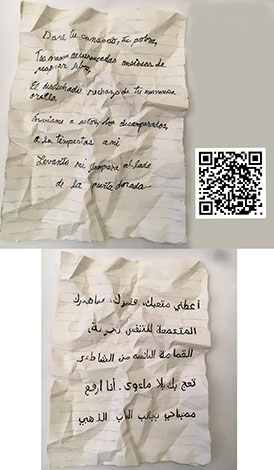 Dame tu cansado, tu pobre,
Tus masas acurrucadas ansiosas de
respirar libre,
El desdichado rechazo de tu numerosa
orilla
Enviame a estos, los desamparados,
a la tempestas a mi
Levanto mi lampara al lado
de la puerta dorada
أعطني متعبك، فقيرك، جماهيرك
المتجمعة للتنفس بحرية،
القمامة البائسة من الشاطئ
تعج بك بلا مأوى. أنا ارفع
مصباحي بجانب الباب الذهبي